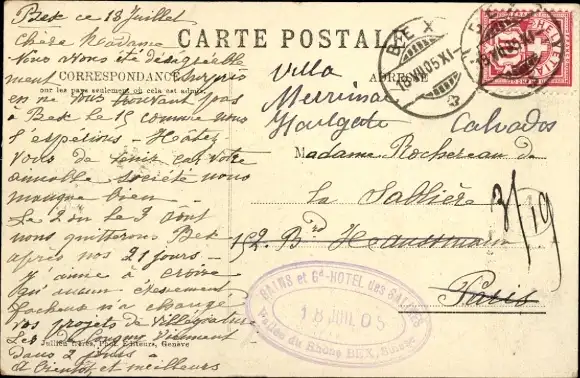 Bex ce 18 Juillet
Chère Madame
CARTE POSTALE
CORRESPONDANCE
ADRESSE
nous avons été désagréable
ment surpris
en ne vous trouvant pas
à Bex le 15 comme nous
l'espérions - Hâtez
vous de venir car votre
aimable société nous
manque bien -
Le 2 ou le 3 Août
nous quitterons Bex
après nos 21 jours -
J'aime à croire
qu'aucun évènement
fâcheux n'a changé
vos projets de villégiature
Les de Longeny viennent
dans 2 jours
à bientôt et meilleurs
Jullien frères, Phot. Editeurs, Genève
Villa
Calvados
Madame Rochereau de
la Sablière
152. Bd Haussmann
Paris
3/19
BEX
18 VII 05 XI
HELVETIA
10
BAINS et Gd-HOTEL des SALINES
18 JUIL 05
Vallée du Rhône BEX, Suisse